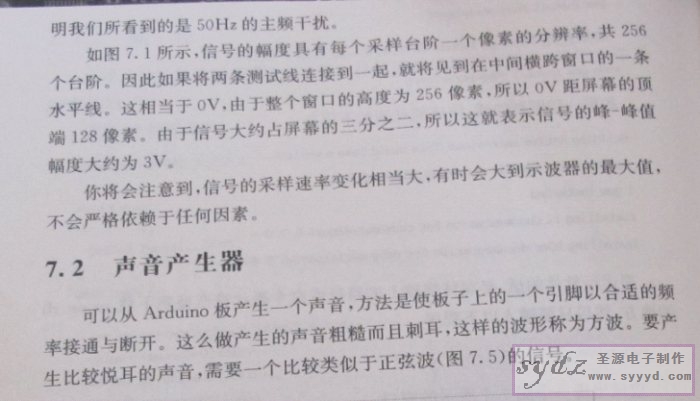 明我们所看到的是50Hz的主频干扰。
如图7.1所示,信号的幅度具有每个采样台阶一个像素的分辨率,共256
个台阶。因此如果将两条测试线连接到一起,就将见到在中间横跨窗口的一条
水平线。这相当于0V,由于整个窗口的高度为256像素,所以0V距屏幕的顶
端128像素。由于信号大约占屏幕的三分之二,所以这就表示信号的峰-峰值
幅度大约为3V。
你将会注意到,信号的采样速率变化相当大,有时会大到示波器的最大值,
不会严格依赖于任何因素。
7.2 声音产生器
可以从Arduino板产生一个声音,方法是使板子上的一个引脚以合适的频
率接通与断开。这么做产生的声音粗糙而且刺耳,这样的波形称为方波。要产
生比较悦耳的声音,需要一个比较类似于正弦波(图7.5)的信号。
sydz 圣源电子制作
www.syyyd.com